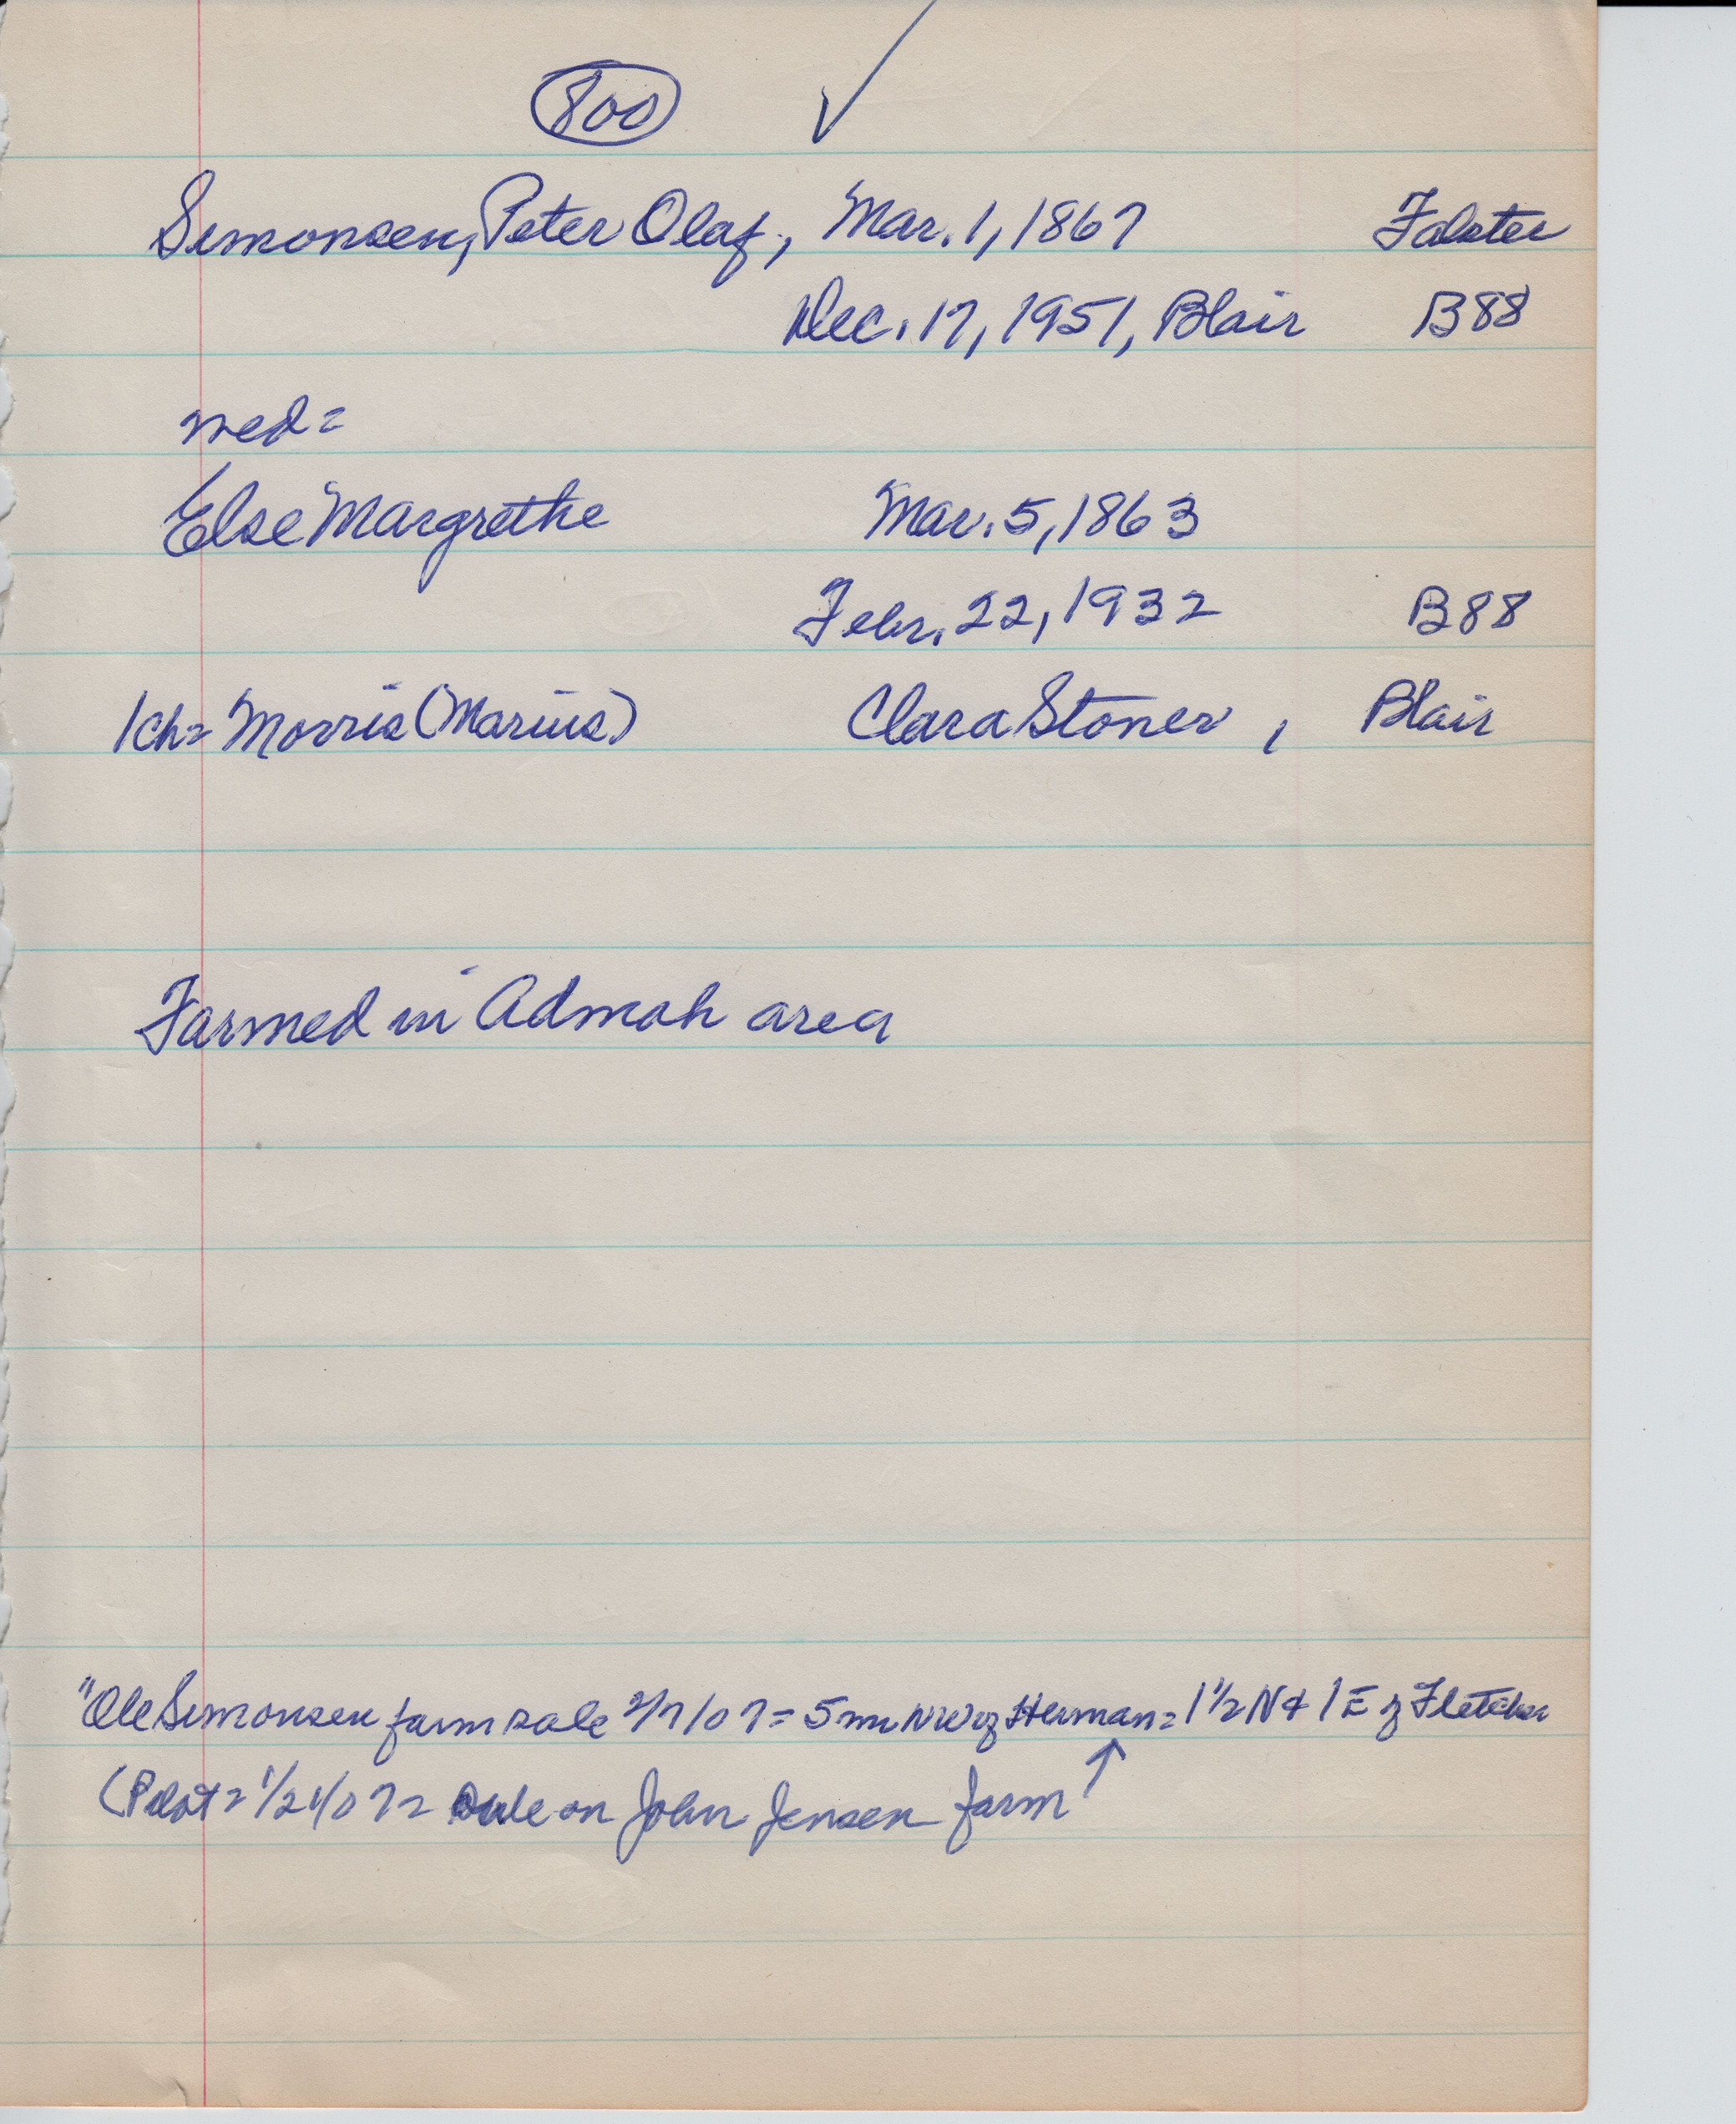 800 ✓
Simonsen, Peter Olaf, Mar. 1, 1867 Falster
Dec. 17, 1951, Blair B88
med=
Else Margrethe Mar. 5, 1863
Febr. 22, 1932 B88
1ch= Morris (Marius) Clara Stoner, Blair
Farmed in Admah area
"Ole Simonsen farm sale 2/7/07 = 5 mi NW of Herman = 1 1/2 N & 1 E of Fletcher
(Pilot = 1/21/07 = sale on John Jensen farm ↑